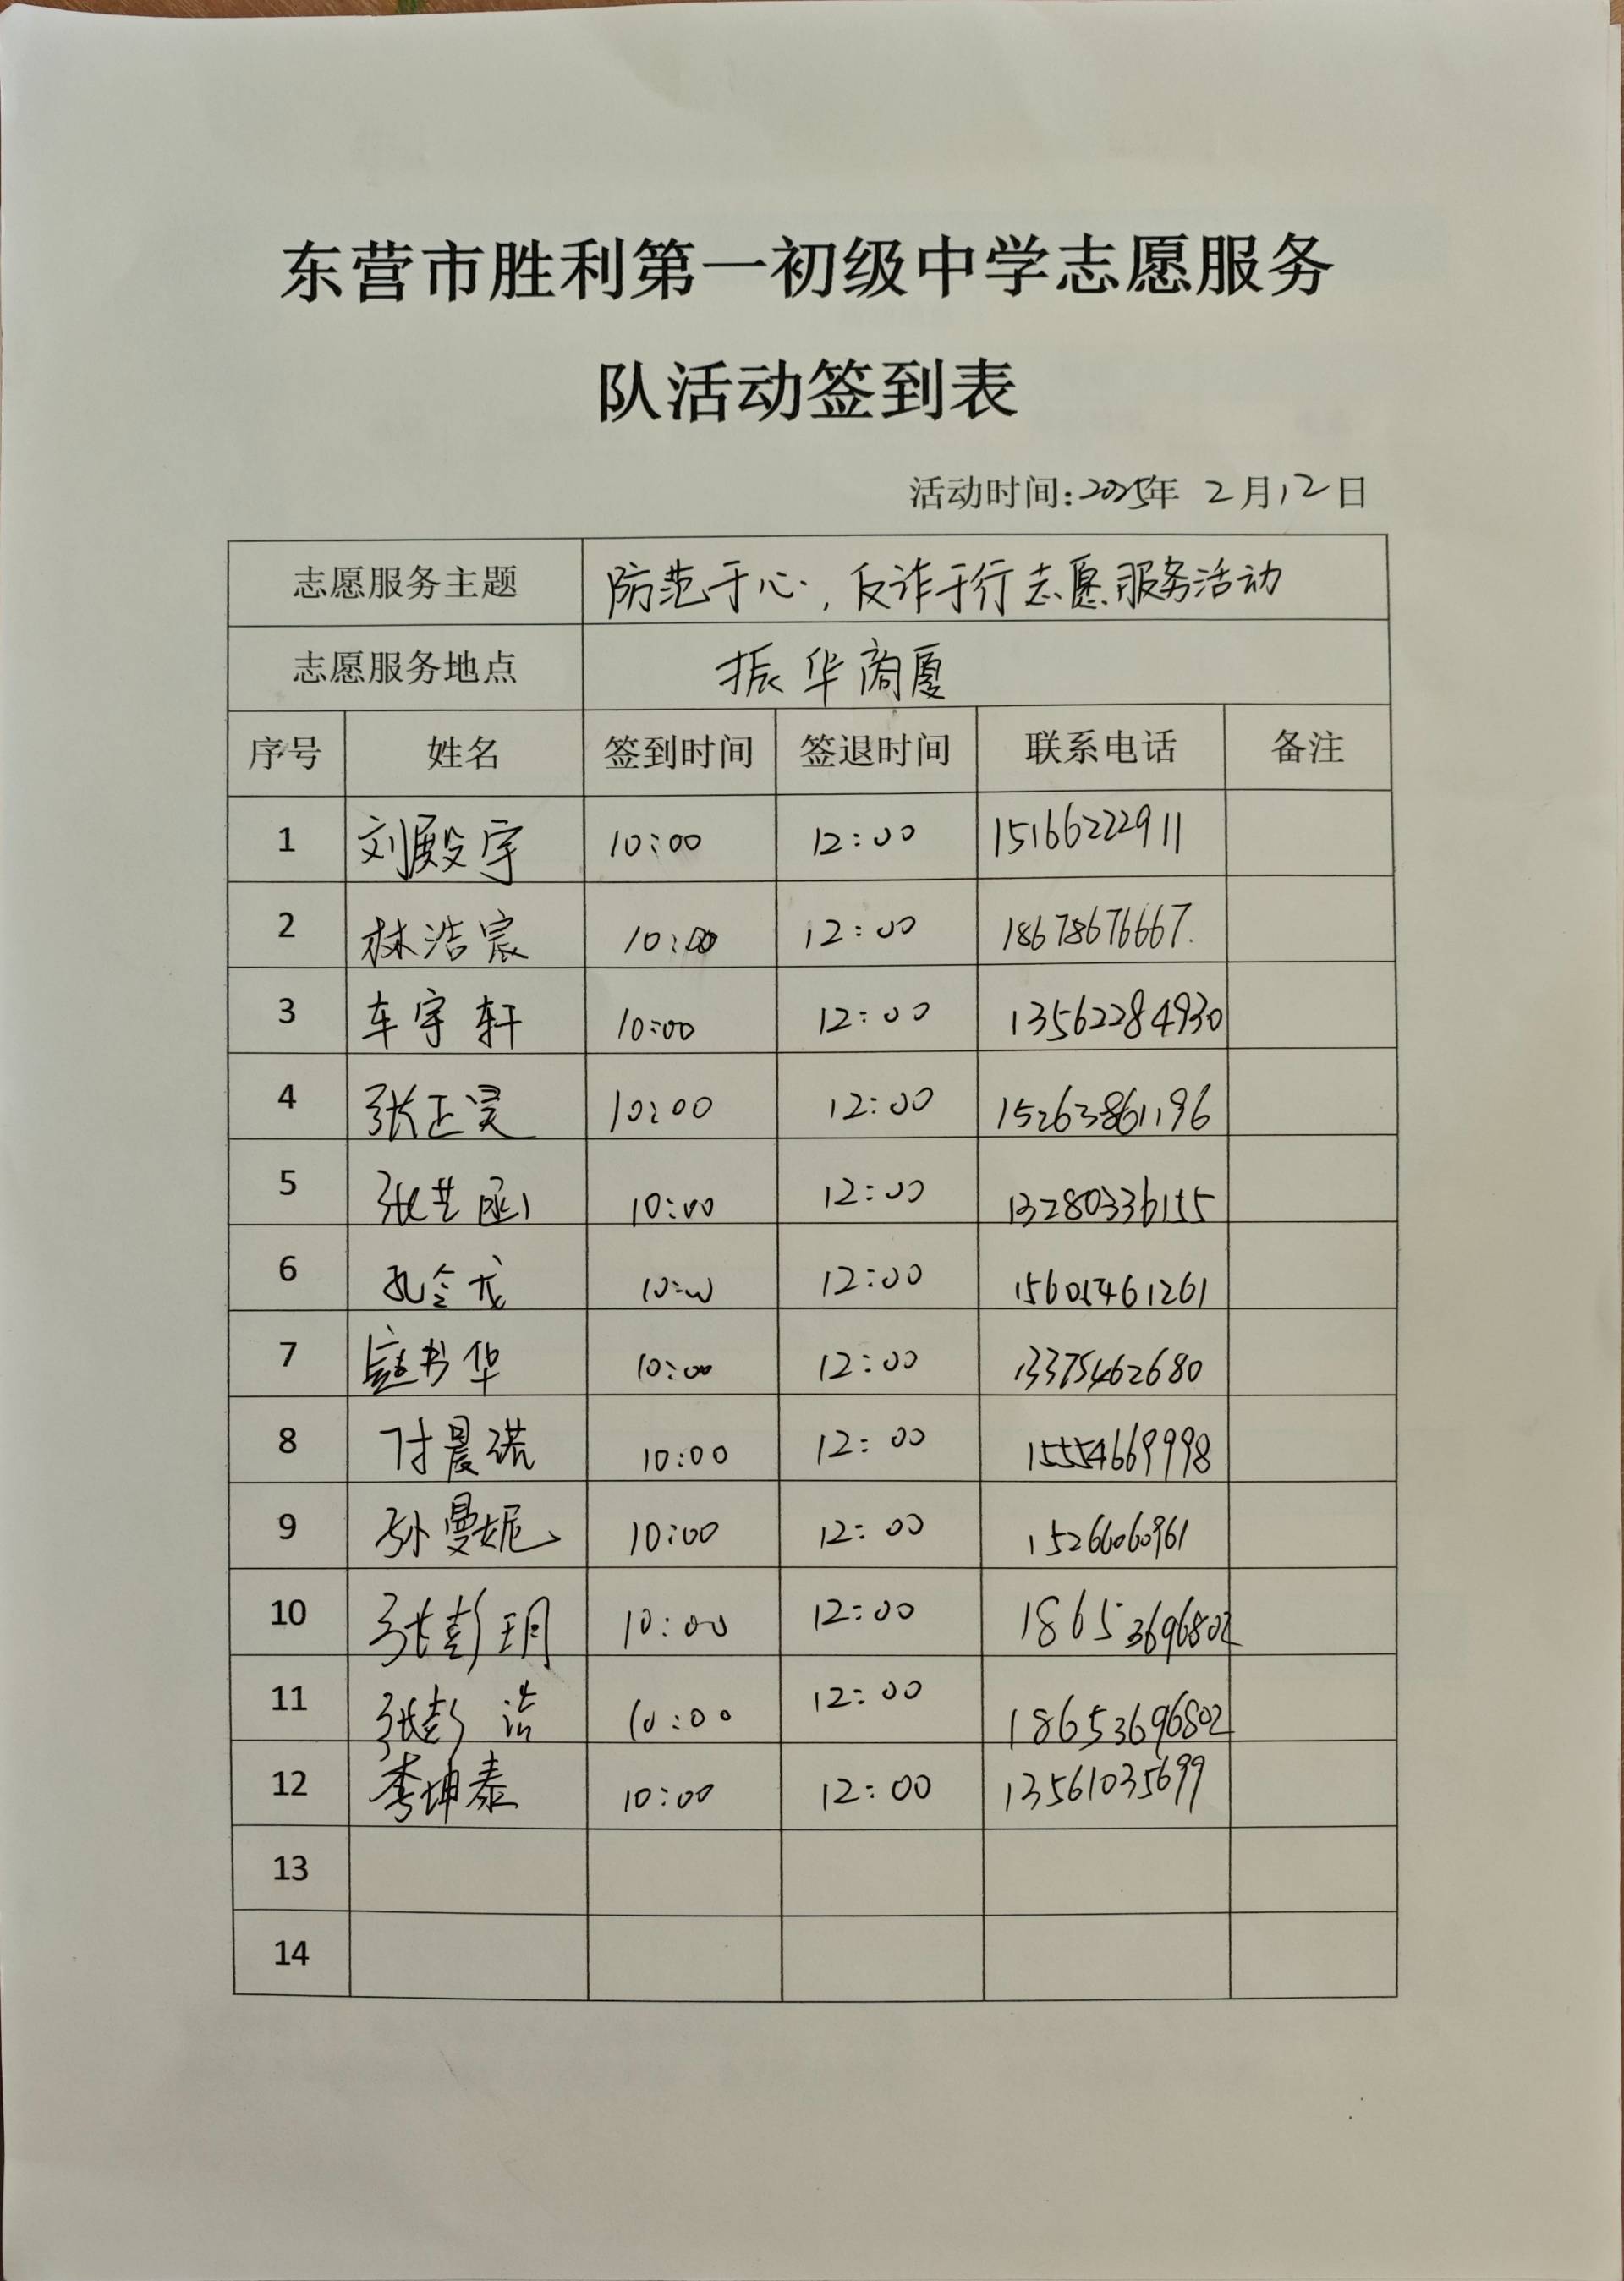 东营市胜利第一初级中学志愿服务
队活动签到表
活动时间:2025年 2月12日
志愿服务主题 防范于心,反诈于行志愿服务活动
志愿服务地点 振华商厦
序号 姓名 签到时间 签退时间 联系电话 备注
1 刘殿宇 10:00 12:00 15166222911
2 林浩宸 10:00 12:00 18678676667.
3 车宇轩 10:00 12:00 13562284930
4 张正昊 10:00 12:00 15263861196
5 张艺函 10:00 12:00 13280336155
6 孔令龙 10:00 12:00 15605461261
7 书华 10:00 12:00 13375462680
8 付晨诺 10:00 12:00 15554669998
9 孙曼妮 10:00 12:00 15266060961
10 张彭玥 10:00 12:00 18653696802
11 张彭浩 10:00 12:00 18653696802
12 李坤泰 10:00 12:00 13561035699
13
14